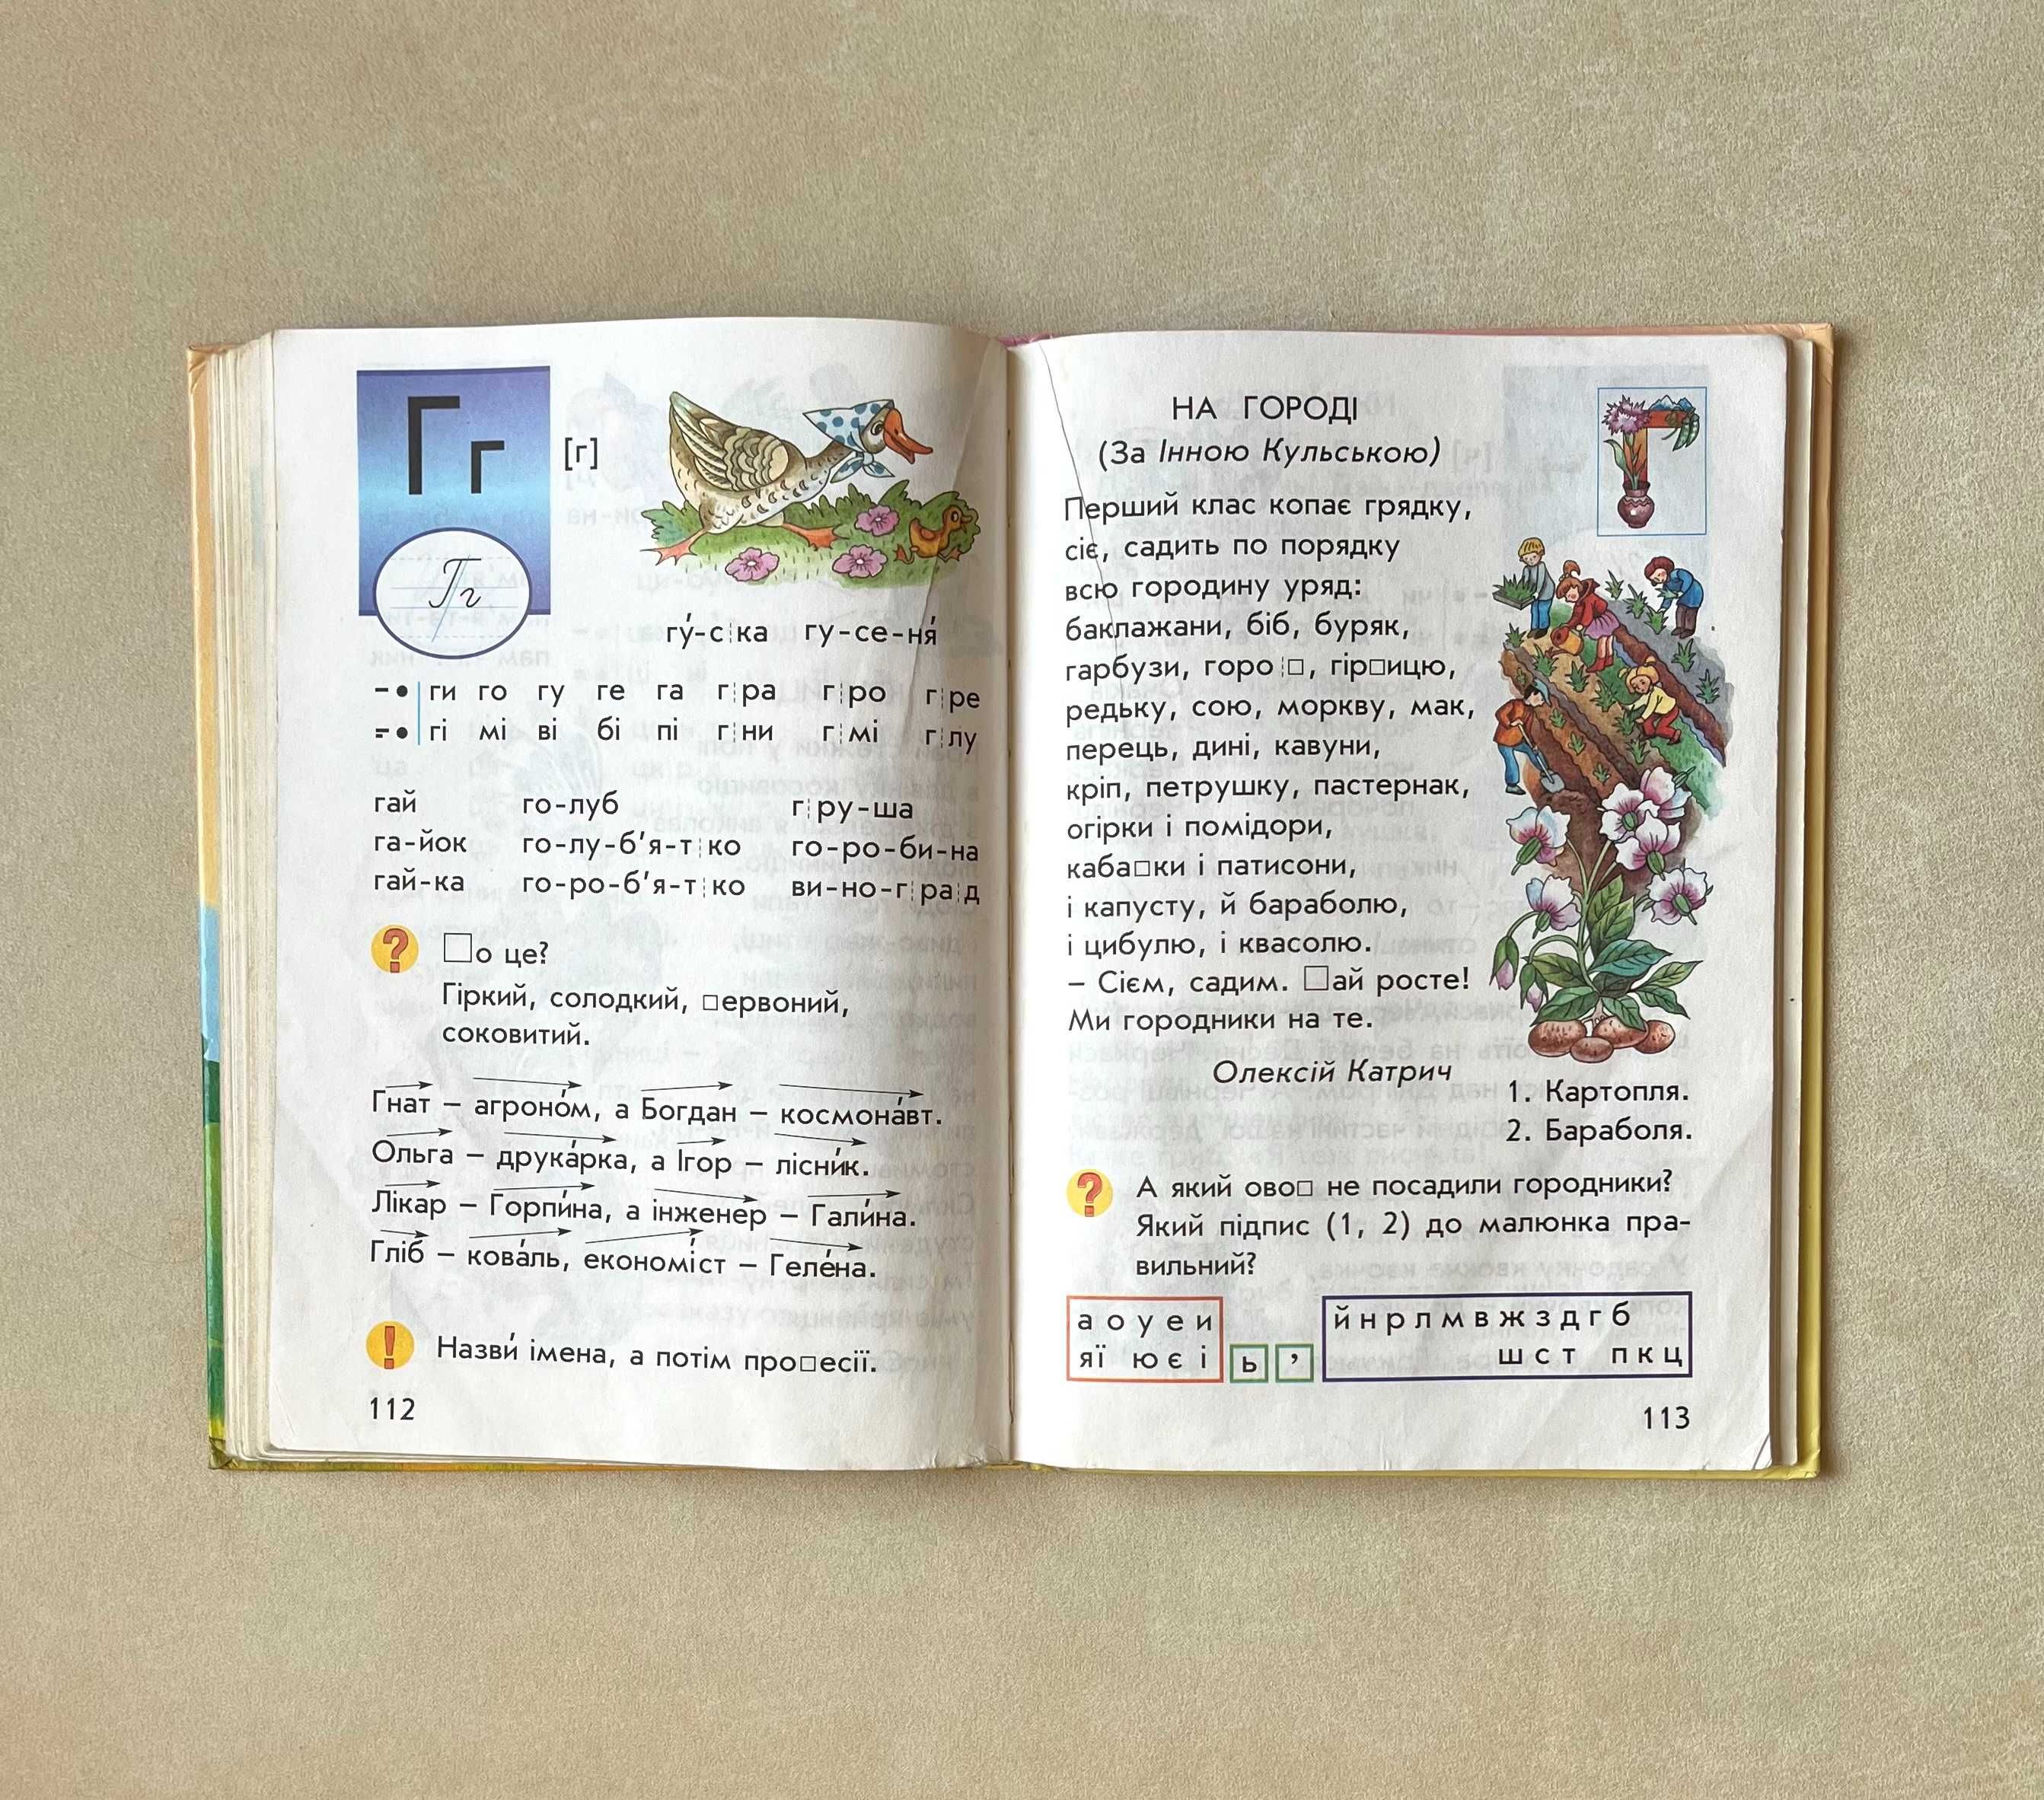 Гг
[г]
Гг
гу́-с¦ка гу-се-ня́
–• ги го гу ге га г¦ра г¦ро г¦ре
=• гі мі ві бі пі г¦ни г¦мі г¦лу
гай го-луб г¦ру-ша
га-йок го-лу-б'я-т¦ко го-ро-би-на
гай-ка го-ро-б'я-т¦ко ви-но-г¦ра¦д
? □о це?
Гіркий, солодкий, □ервоний,
соковитий.
Гнат – агроно́м, а Богдан – космона́вт.
Ольга – друка́рка, а Ігор – лісни́к.
Лікар – Горпи́на, а інженер – Гали́на.
Гліб – кова́ль, економі́ст – Геле́на.
! Назви́ імена, а потім про□есії.
112
НА ГОРОДІ
(За Інною Кульською)
Г
Перший клас копає грядку,
сіє, садить по порядку
всю городину уряд:
баклажани, біб, буряк,
гарбузи, горо¦□, гір□ицю,
редьку, сою, моркву, мак,
перець, дині, кавуни,
кріп, петрушку, пастернак,
огірки і помідори,
каба□ки і патисони,
і капусту, й бараболю,
і цибулю, і квасолю.
– Сієм, садим. □ай росте!
Ми городники на те.
Олексій Катрич
1. Картопля.
2. Бараболя.
? А який ово□ не посадили городники?
Який підпис (1, 2) до малюнка пра-
вильний?
а о у е и
яї ю є і
ь
’
й н р л м в ж з д г б
ш с т п к ц
113